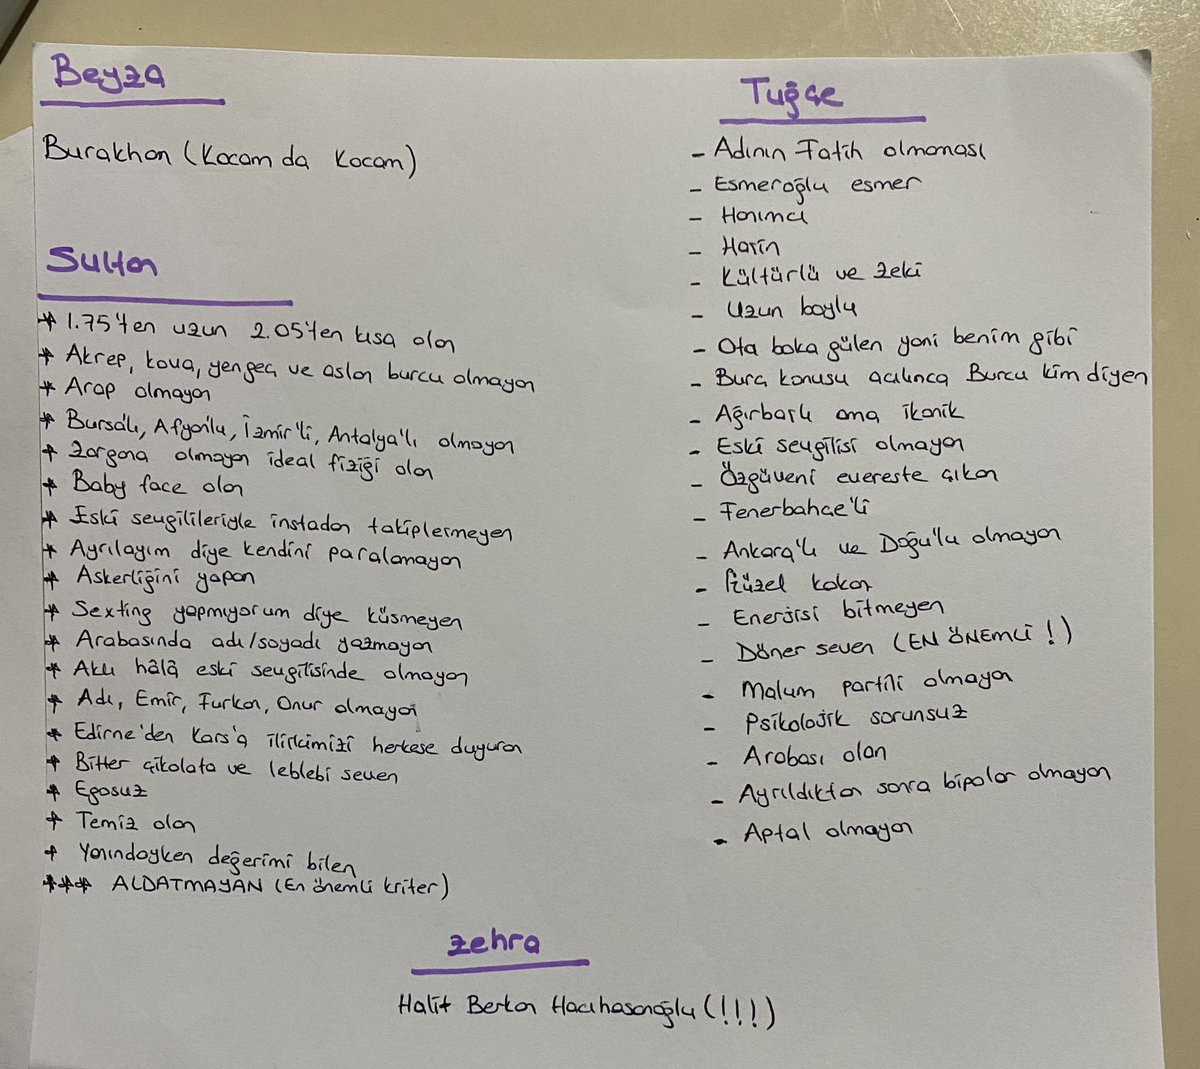 Beyza
Burakhan (Kocam da Kocam)
Sultan
* 1.75'ten uzun 2.05'ten kısa olan
* Akrep, kova, yengeç ve aslan burcu olmayan
* Arap olmayan
* Bursalı, Afyonlu, İzmir'li, Antalya'lı olmayan
* Zargana olmayan ideal fiziği olan
* Baby face olan
* Eski sevgilileriyle instadan takipleşmeyen
* Ayrılayım diye kendini paralamayan
* Askerliğini yapan
* Sexting yapmıyorum diye küsmeyen
* Arabasında adı/soyadı yazmayan
* Aklı hâlâ eski sevgilisinde olmayan
* Adı, Emir, Furkan, Onur olmayan
* Edirne'den Kars'a ilişkimizi herkese duyuran
* Bitter çikolata ve leblebi seven
* Egosuz
* Temiz olan
* Yanındayken değerimi bilen
*** ALDATMAYAN (En önemli kriter)
Tuğçe
- Adının Fatih olmaması
- Esmeroğlu esmer
- Hanımcı
- Harin
- Kültürlü ve zeki
- Uzun boylu
- Ota boka gülen yani benim gibi
- Burç konusu açılınca Burcu kim diyen
- Ağırbaşlı ama ikonik
- Eski sevgilisi olmayan
- Özgüveni evereste çıkan
- Fenerbahçe'li
- Ankara'lı ve Doğu'lu olmayan
- Güzel kokan
- Enerjisi bitmeyen
- Döner seven (EN ÖNEMLİ !)
- Malum partili olmayan
- Psikolojik sorunsuz
- Arabası olan
- Ayrıldıktan sonra bipolar olmayan
- Aptal olmayan
Zehra
Halit Berkan Hacıhasanoğlu (!!!)